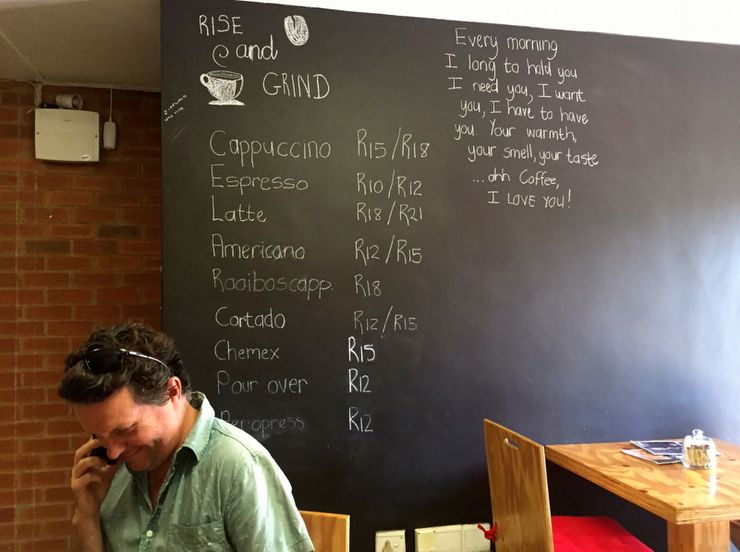 RISE
and
GRIND
Cappuccino R15/R18
Espresso R10/R12
Latte R18/R21
Americano R12/R15
Rooiboscapp. R18
Cortado R12/R15
Chemex R15
Pour over R12
Aeropress R12
Every morning
I long to hold you
I need you, I want
you, I have to have
you. Your warmth,
your smell, your taste
...ahh Coffee,
I LOVE YOU!